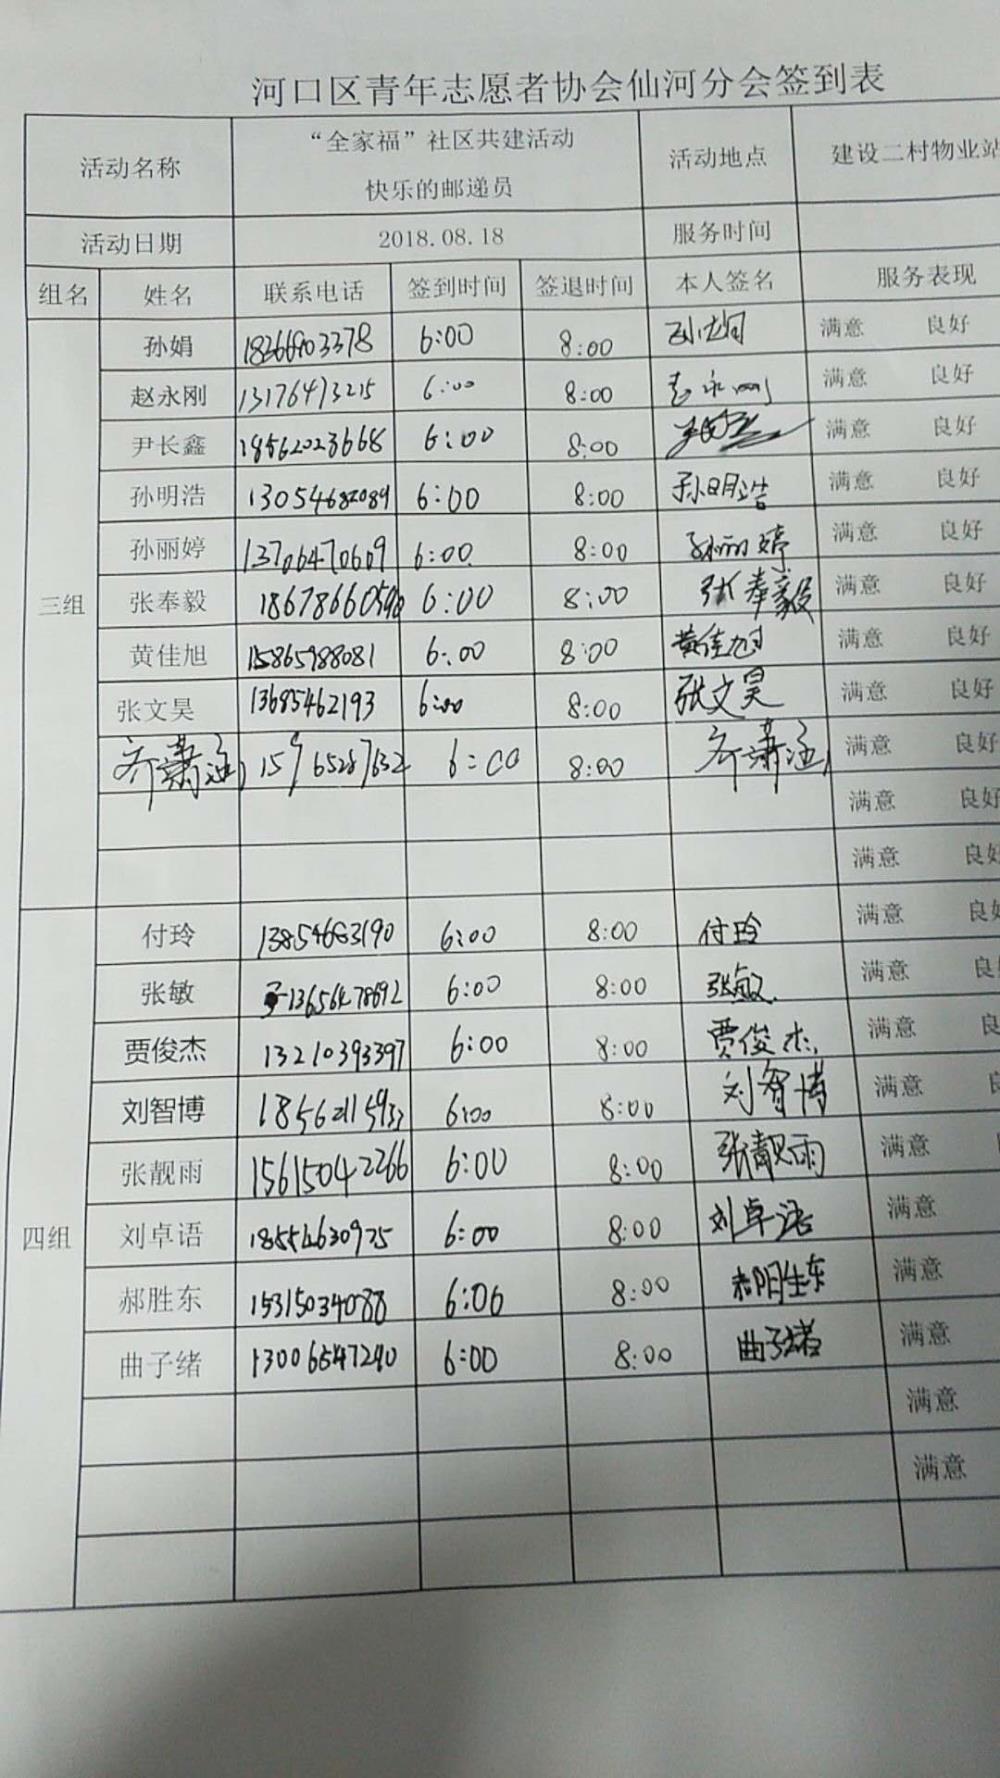 河口区青年志愿者协会仙河分会签到表
活动名称 “全家福”社区共建活动 快乐的邮递员 活动地点 建设二村物业站
活动日期 2018.08.18 服务时间
组名 姓名 联系电话 签到时间 签退时间 本人签名 服务表现
三组
孙娟 18266903378 6:00 8:00 孙娟 满意 良好
赵永刚 13176473215 6:00 8:00 赵永刚 满意 良好
尹长鑫 18562023668 6:00 8:00 满意 良好
孙明浩 13054682089 6:00 8:00 孙明浩 满意 良好
孙丽婷 13706470609 6:00 8:00 孙丽婷 满意 良好
张奉毅 18678660598 6:00 8:00 张奉毅 满意 良好
黄佳旭 15865988081 6:00 8:00 黄佳旭 满意 良好
张文昊 13685462193 6:00 8:00 张文昊 满意 良好
齐潇涵 15965287632 6:00 8:00 齐潇涵 满意 良好
满意 良好
满意 良好
四组
付玲 13854663190 6:00 8:00 付玲 满意 良好
张敏 13656478692 6:00 8:00 张敏 满意 良
贾俊杰 13210393397 6:00 8:00 贾俊杰 满意 良
刘智博 18562115933 6:00 8:00 刘智博 满意
张靓雨 15615042266 6:00 8:00 张靓雨 满意
刘卓语 18554630975 6:00 8:00 刘卓语 满意
郝胜东 15315034088 6:06 8:00 郝胜东 满意
曲子绪 13006547240 6:00 8:00 曲子绪 满意
满意
满意